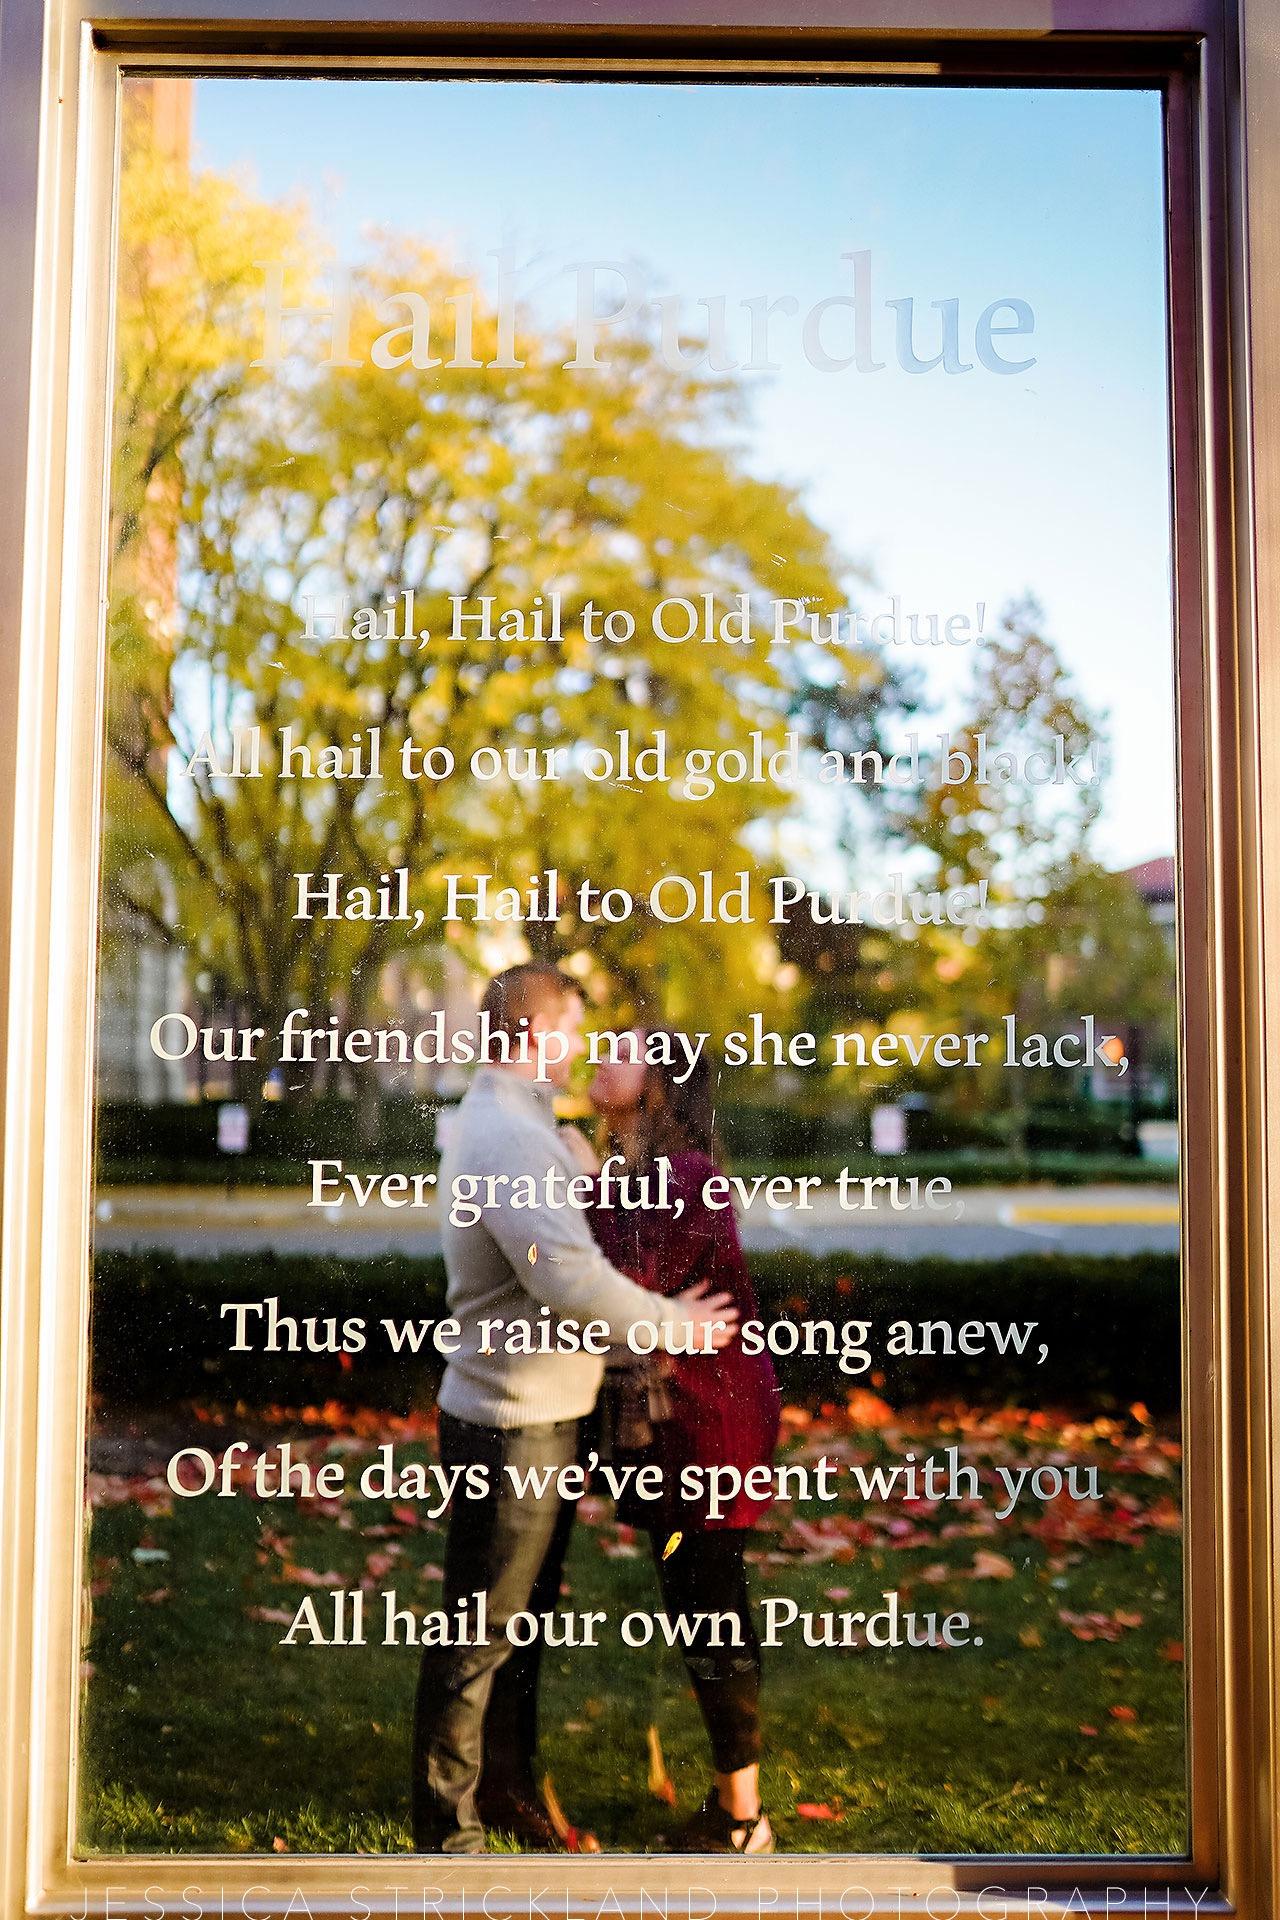 Hail Purdue
Hail, Hail to Old Purdue!
All hail to our old gold and black!
Hail, Hail to Old Purdue!
Our friendship may she never lack,
Ever grateful, ever true,
Thus we raise our song anew,
Of the days we've spent with you
All hail our own Purdue.
JESSICA STRICKLAND PHOTOGRAPHY